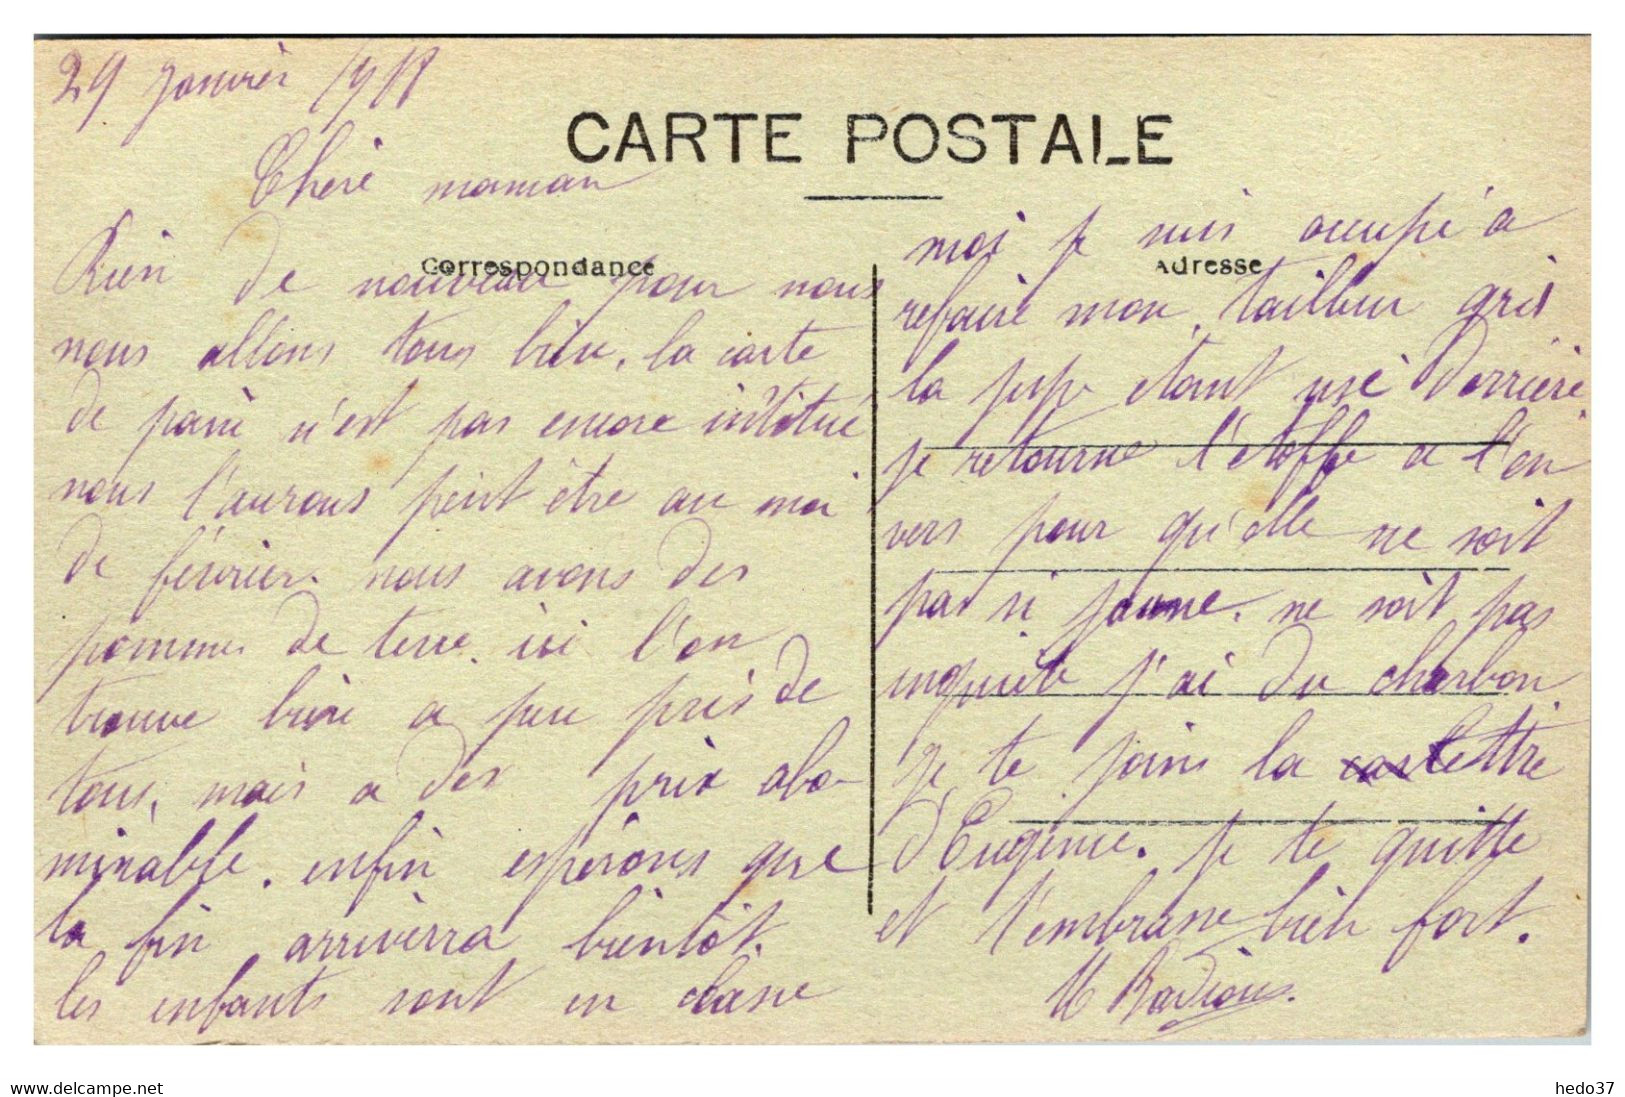 29 Janvier 1918
CARTE POSTALE
Chère maman
Correspondance
Rien de nouveau pour nous
nous allons tous bien. la carte
de pain n'est pas encore intitué
nous l'aurons peut être au moi
de février. nous avons des
pommes de terre. ici l'on
trouve bien a peu près de
tous, mais a des prix abo-
minable. enfin espérons que
la fin arriverra bientôt.
les enfants sont en classe
moi je suis occupé a
Adresse
refaire mon tailleur gris
la jupe étant usé derrière
je retourne l'etoffe a l'en
vers pour qu'elle ne soit
pas si jaune. ne soit pas
inquiète j'ai du charbon
je te joins la lettre
d'Eugénie. je te quitte
et t'embrasse bien fort.
M Badious
www.delcampe.net
hedo37